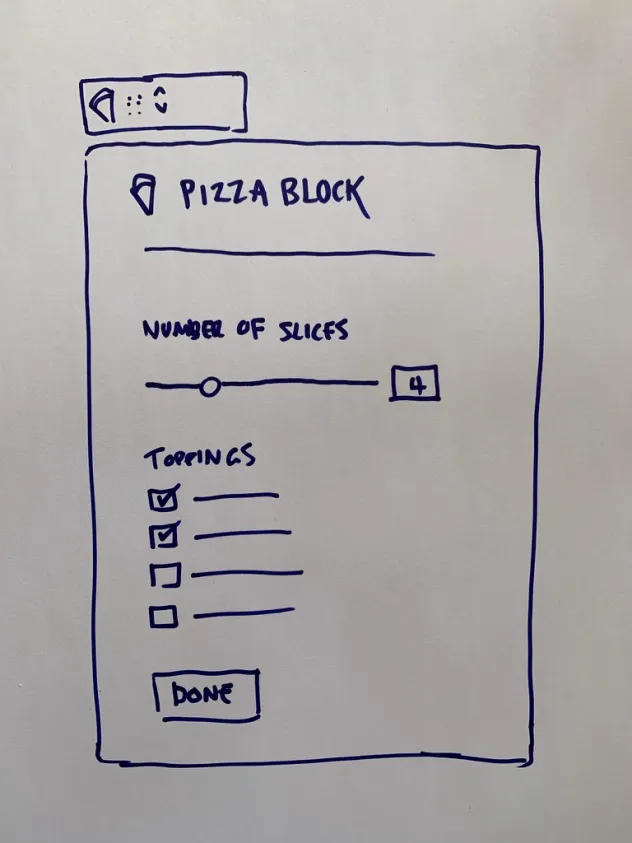 PIZZA BLOCK
NUMBER OF SLICES
4
TOPPINGS
DONE